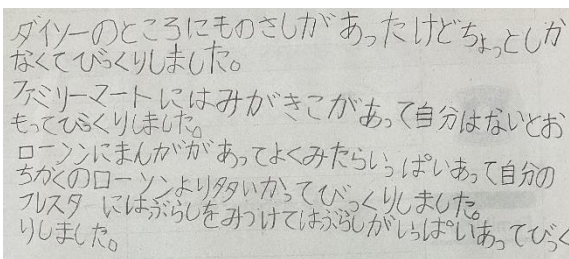 ダイソーのところにものさしがあったけどちょっとしか
なくてびっくりしました。
ファミリーマートにはみがきこがあって自分はないとお
もってびっくりしました。
ローソンにまんががあってよくみたらいっぱいあって自分の
ちかくのローソンより多いかってびっくりしました。
フレスタ にはぶらしをみつけてはぶらしがいっぱいあってびっく
りしました。